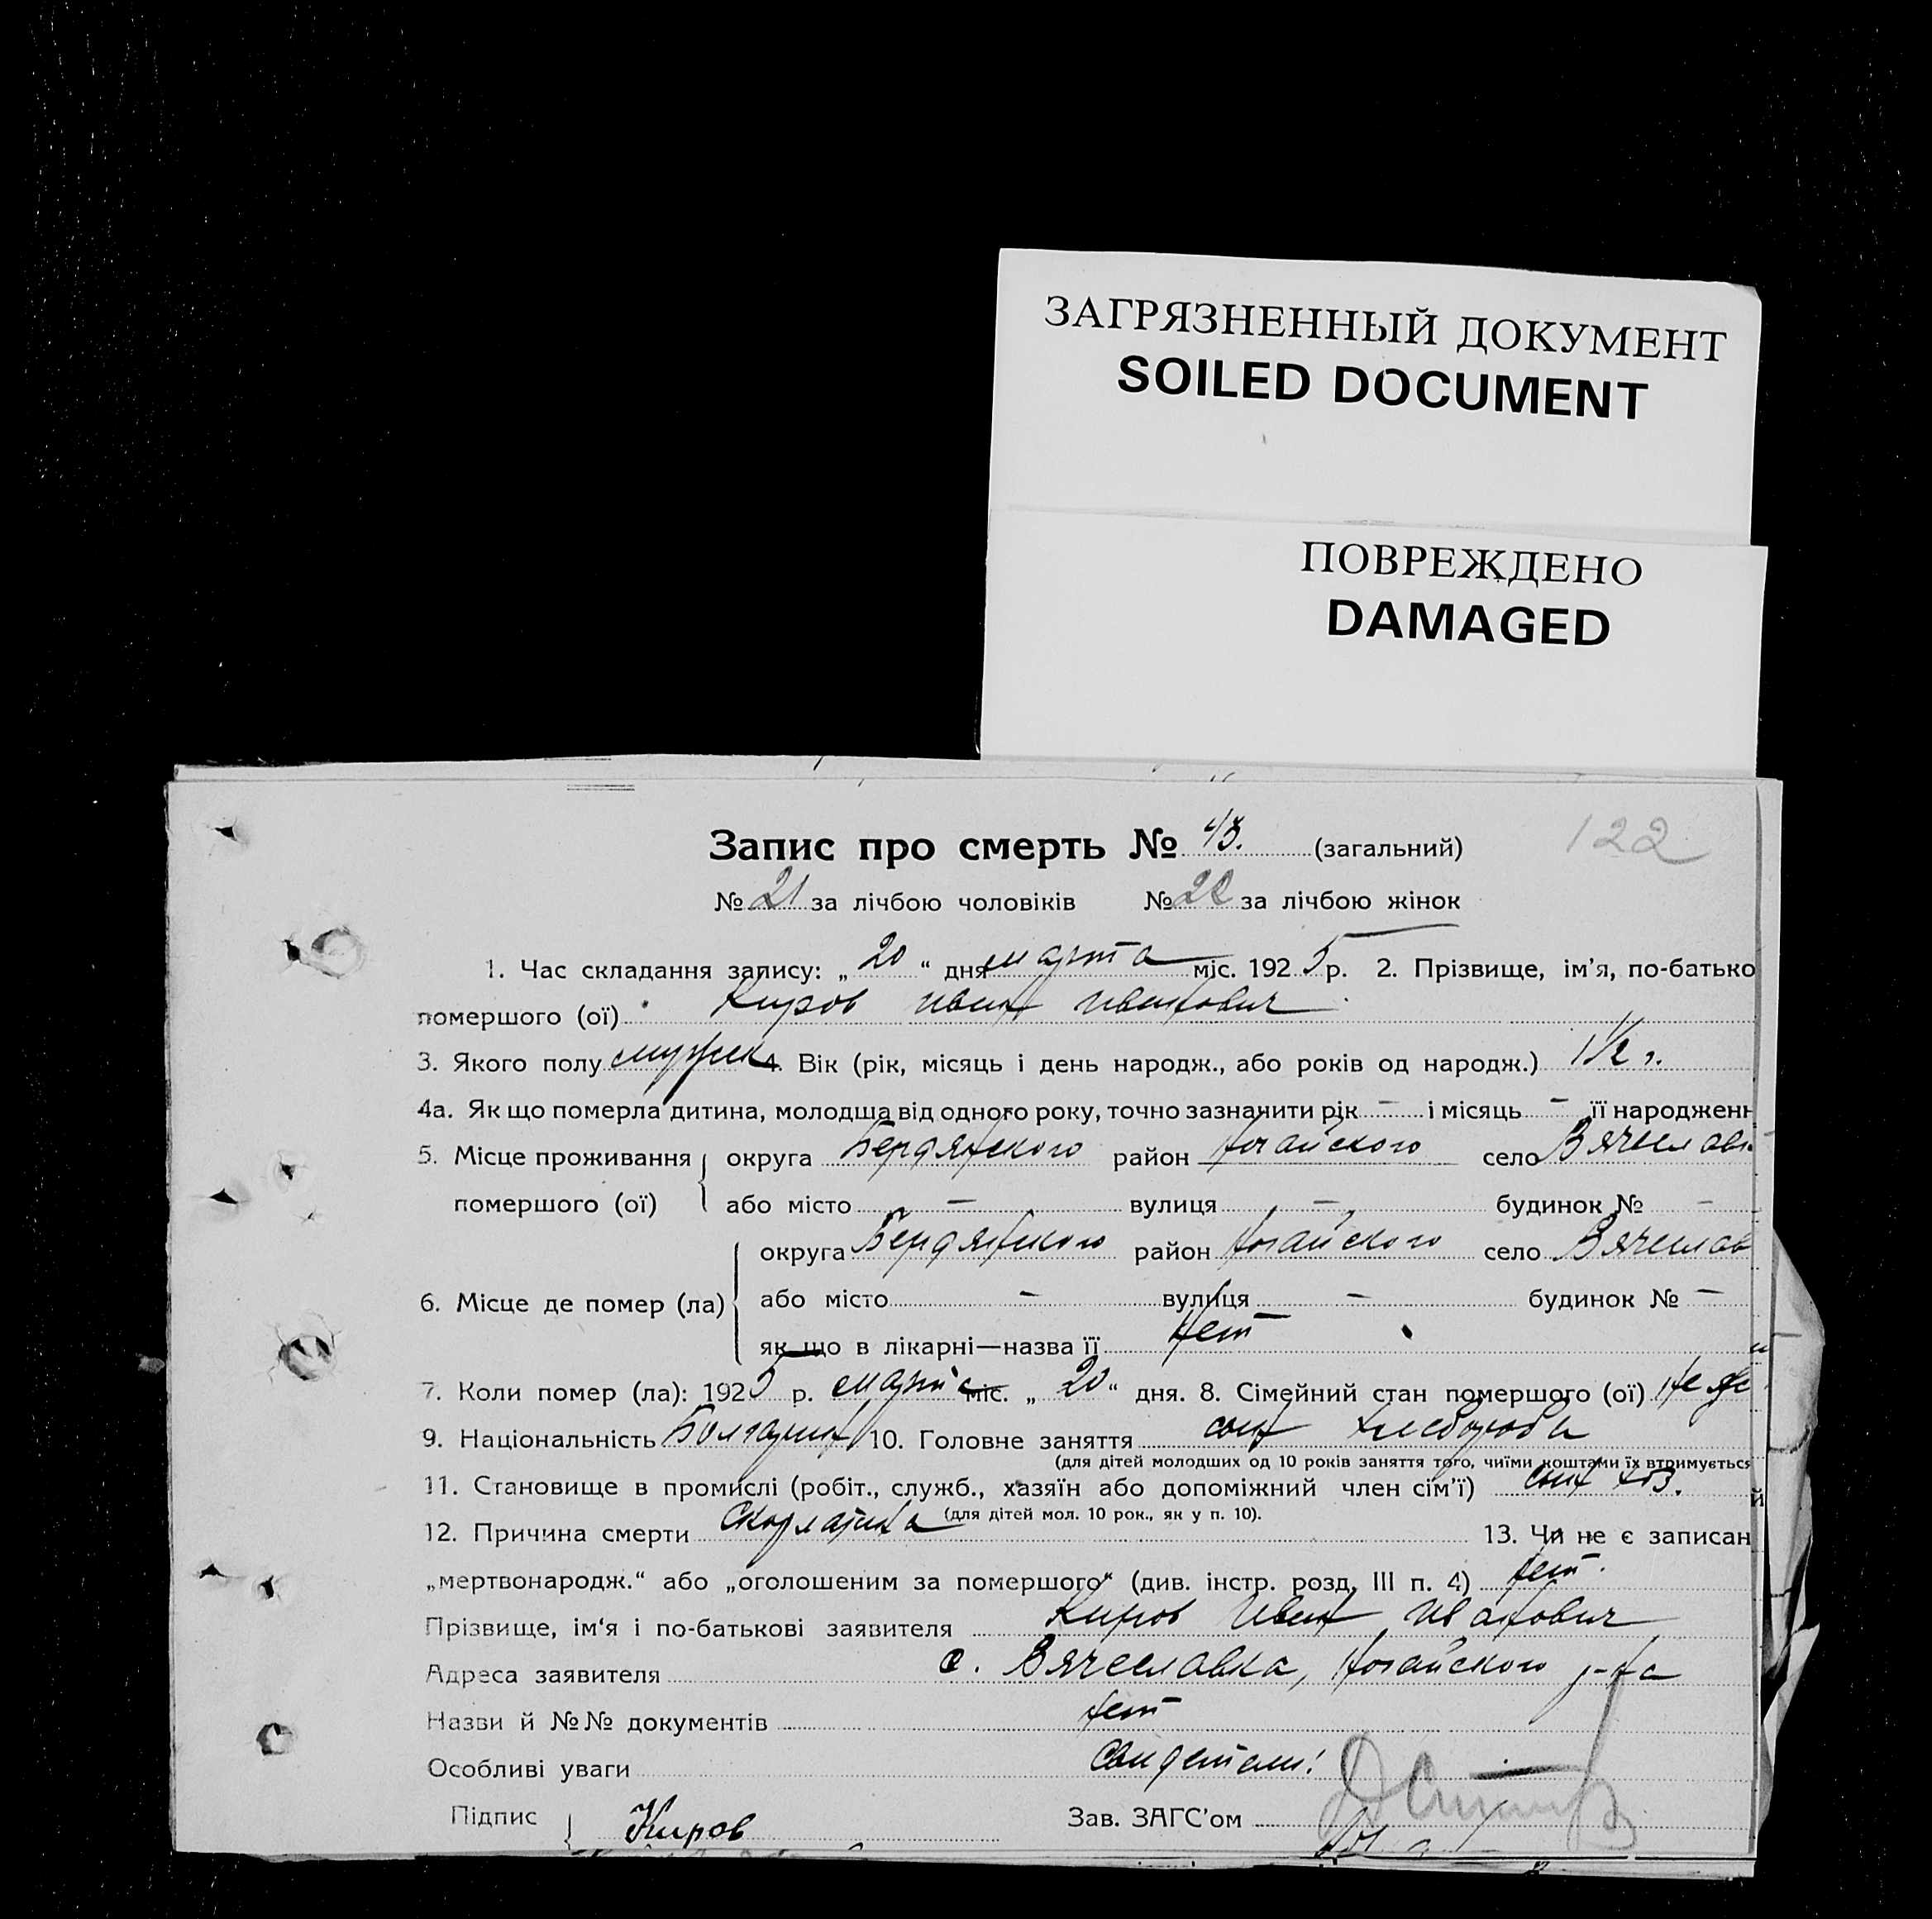 ЗАГРЯЗНЕННЫЙ ДОКУМЕНТ
SOILED DOCUMENT
ПОВРЕЖДЕНО
DAMAGED
122
Запис про смерть № 43. (загальний)
№ 21 за лічбою чоловіків № 22 за лічбою жінок
1. Час складання запису: „20“ дня марта міс. 1925 р. 2. Прізвище, ім’я, по-батько
помершого (ої) Киров Иван Иванович
3. Якого полу мужск 4. Вік (рік, місяць і день народж., або років од народж.) 1 1/2 г.
4а. Як що померла дитина, молодша від одного року, точно зазначити рік — і місяць — її народженн
5. Місце проживання округа Бердянского район Ногайского село Вячеславк
помершого (ої) або місто — вулиця — будинок № —
округа Бердянского район Ногайского село Вячеслав
6. Місце де помер (ла) або місто — вулиця — будинок № —
як що в лікарні—назва її нет
7. Коли помер (ла): 1925 р. марта міс. „20“ дня. 8. Сімейний стан помершого (ої) не же
9. Національність Болгарин 10. Головне заняття сын хлебороба
(для дітей молодших од 10 років заняття того, чиїми коштами їх втримується
11. Становище в промислі (робіт., служб., хазяїн або допоміжний член сім’ї) сын хоз.
(для дітей мол. 10 рок., як у п. 10).
12. Причина смерти Скорлатина 13. Чи не є записан
„мертвонародж.“ або „оголошеним за помершого“ (див. інстр. розд. III п. 4) нет.
Прізвище, ім‘я і по-батькові заявителя Киров Иван Иванович
Адреса заявителя с. Вячеславка, Ногайского р-на
Назви й №№ документів нет
Особливі уваги
Підпис Киров Зав. ЗАГС’ом